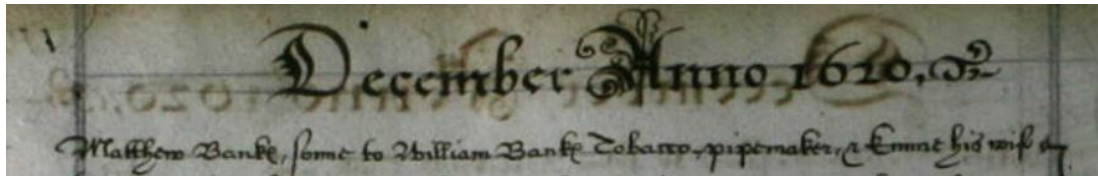 December Anno 1620. &c
Matthew Banke, sonne to William Banke Tobacco-pipemaker, & Emme his wife